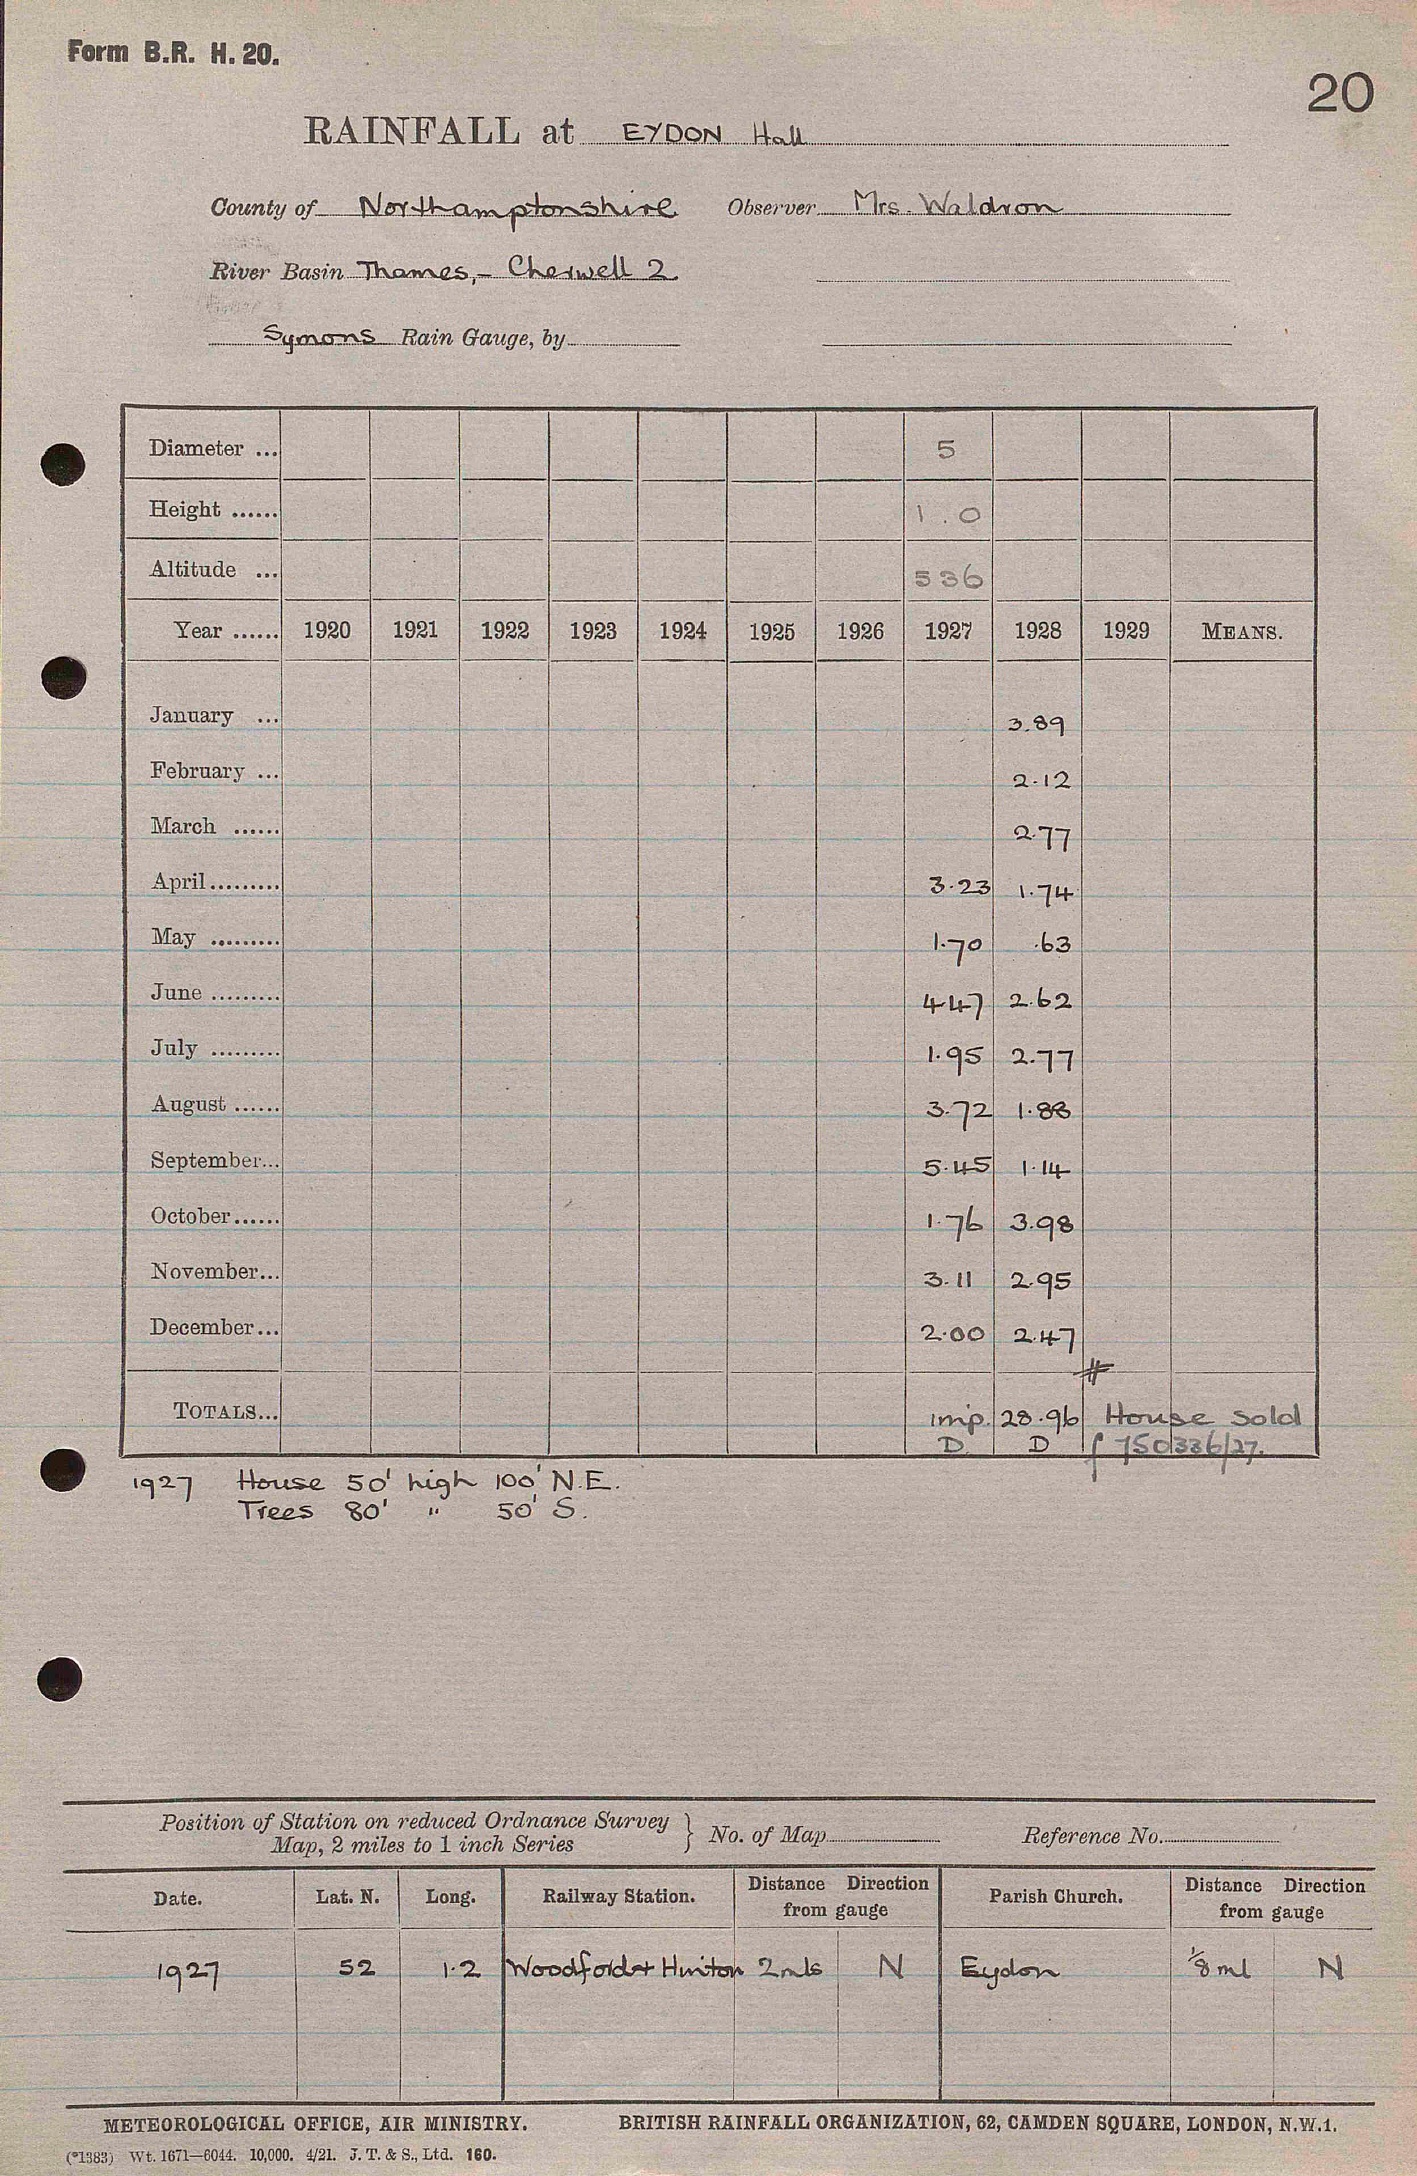 Form B.R. H. 20.
20
RAINFALL at EYDON Hall
County of Northamptonshire Observer Mrs. Waldron
River Basin Thames,- Cherwell 2
Symons Rain Gauge, by
Diameter ... 5
Height ...... 1.0
Altitude ... 536
Year ...... 1920 1921 1922 1923 1924 1925 1926 1927 1928 1929 MEANS.
January ... 3.89
February ... 2.12
March ...... 2.77
April......... 3.23 1.74
May ......... 1.70 .63
June ......... 4.47 2.62
July ......... 1.95 2.77
August ...... 3.72 1.88
September... 5.45 1.14
October...... 1.76 3.98
November... 3.11 2.95
December... 2.00 2.47
#
TOTALS... imp. 28.96 House sold
D D f 750336/27.
1927 House 50' high 100' N.E.
Trees 80' " 50' S.
Position of Station on reduced Ordnance Survey
Map, 2 miles to 1 inch Series } No. of Map Reference No.
Date. Lat. N. Long. Railway Station. Distance Direction from gauge Parish Church. Distance Direction from gauge
1927 52 1.2 Woodford+ Hinton 2mls N Eydon 1/8 ml N
METEOROLOGICAL OFFICE, AIR MINISTRY. BRITISH RAINFALL ORGANIZATION, 62, CAMDEN SQUARE, LONDON, N.W.1.
(*1383) Wt. 1671—6044. 10,000. 4/21. J. T. & S., Ltd. 160.